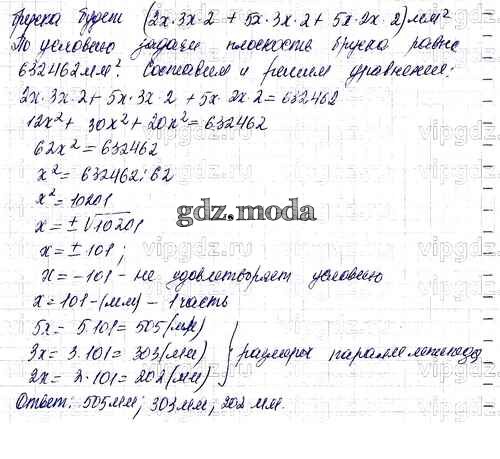 бруска будет (2x·3x·2 + 5x·3x·2 + 5x·2x·2) мм²
По условию задачи плоскость бруска равна
632462 мм². Составим и решим уравнение:
2x·3x·2 + 5x·3x·2 + 5x·2x·2 = 632462
12x² + 30x² + 20x² = 632462
62x² = 632462
x² = 632462:62
x² = 10201
x = ±√10201
x = ±101;
x = -101 - не удовлетворяет условию
x = 101 - (мм) - 1 часть
5x = 5·101 = 505 (мм)
3x = 3·101 = 303 (мм)
2x = 2·101 = 202 (мм)
} размеры параллелепипеда
Ответ: 505мм; 303мм; 202 мм.
gdz.moda
vipgdz.ru
vipgdz.ru
vipgdz.ru